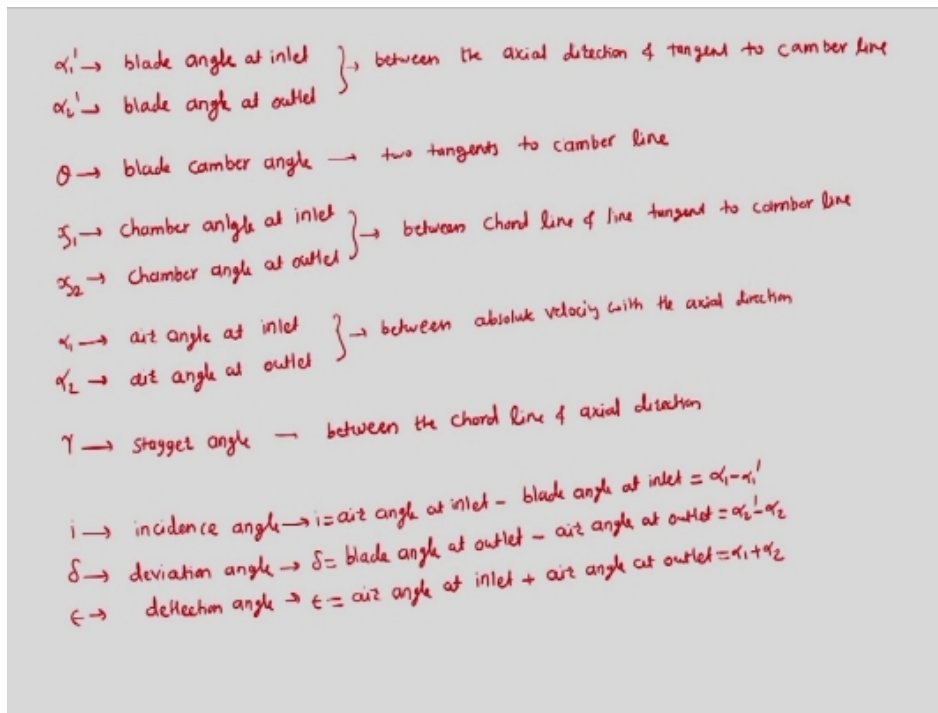 α₁' → blade angle at inlet } → between the axial direction & tangent to camber line
α₂' → blade angle at outlet
θ → blade camber angle → two tangents to camber line
ʒ₁ → Chamber anlgle at inlet } → between Chord line & line tangent to camber line
ʒ₂ → Chamber angle at outlet
α₁ → air angle at inlet } → between absolute velociy with the axial direction
α₂ → air angle at outlet
γ → Stagger angle — between the chord line & axial direction
i → incidence angle → i = air angle at inlet - blade angle at inlet = α₁-α₁'
δ → deviation angle → δ = blade angle at outlet - air angle at outlet = α₂'-α₂
ϵ → deflection angle → ϵ = air angle at inlet + air angle at outlet = α₁+α₂